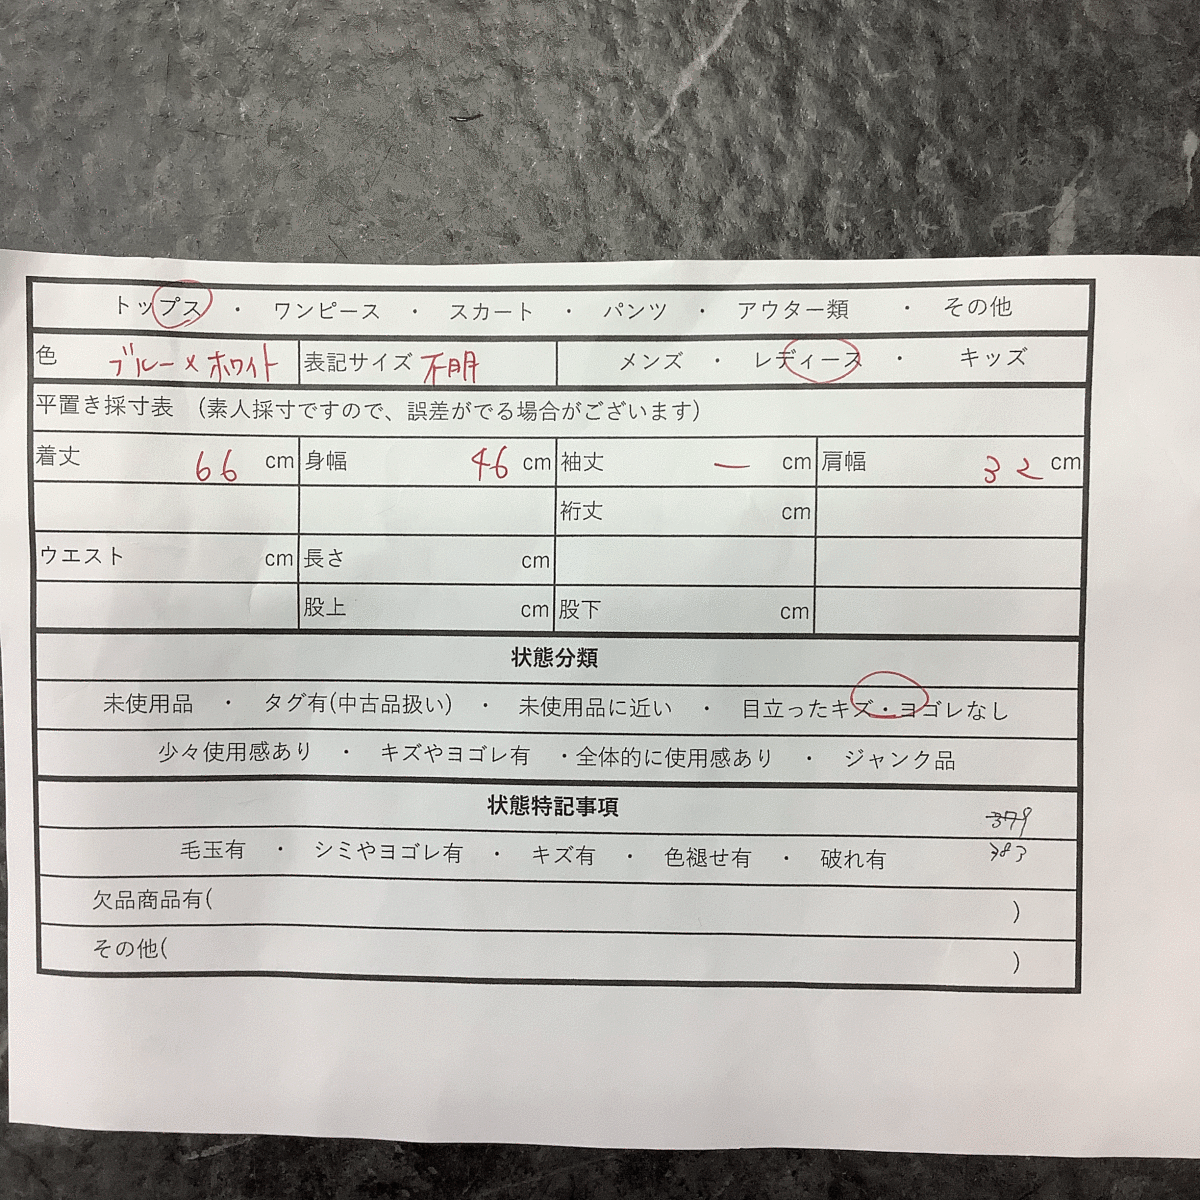 トップス ・ ワンピース ・ スカート ・ パンツ ・ アウター類 ・ その他
色 ブルー×ホワイト 表記サイズ 不明 メンズ ・ レディース ・ キッズ
平置き採寸表 (素人採寸ですので、誤差がでる場合がございます)
着丈 66 cm 身幅 46 cm 袖丈 ー cm 肩幅 32 cm
裄丈 cm
ウエスト cm 長さ cm
股上 cm 股下 cm
状態分類
未使用品 ・ タグ有(中古品扱い) ・ 未使用品に近い ・ 目立ったキズ・ヨゴレなし
少々使用感あり ・ キズやヨゴレ有 ・全体的に使用感あり ・ ジャンク品
状態特記事項 379
毛玉有 ・ シミやヨゴレ有 ・ キズ有 ・ 色褪せ有 ・ 破れ有 383
欠品商品有( )
その他( )